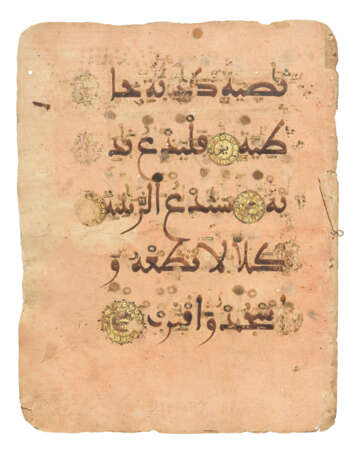 نصية كذبة خا
طية فليدع ند
يه سندع الزبنية
كلا لا تطعه و
اسجد واقترب